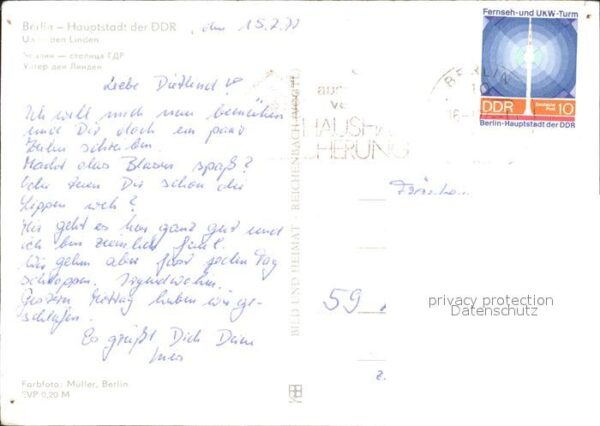 Berlin – Hauptstadt der DDR
Unter den Linden
Берлин — столица ГДР
Унтер ден Линден
den 15.7.70
Liebe Dietlind
Ich will mich nun bemühen
und Dir doch ein paar
Zeilen schreiben.
Macht das Blasen spaß?
Oder tuen Dir schon die
Lippen weh?
Mir geht es hier ganz gut und
ich bin ziemlich faul.
Wir gehn aber fast jeden Tag
schoppen.
Gestern Mittag haben wir ge-
schlafen.
Es grüßt Dich Deine
Ines
Farbfoto: Müller, Berlin
EVP 0,20 M
BILD UND HEIMAT REICHENBACH (VOGTL)
BERLIN
HAUSH
CHERUNG
Fernseh- und UKW-Turm
DDR
Deutsche Post
10
Berlin-Hauptstadt der DDR
Fräulein
59
privacy protection
Datenschutz